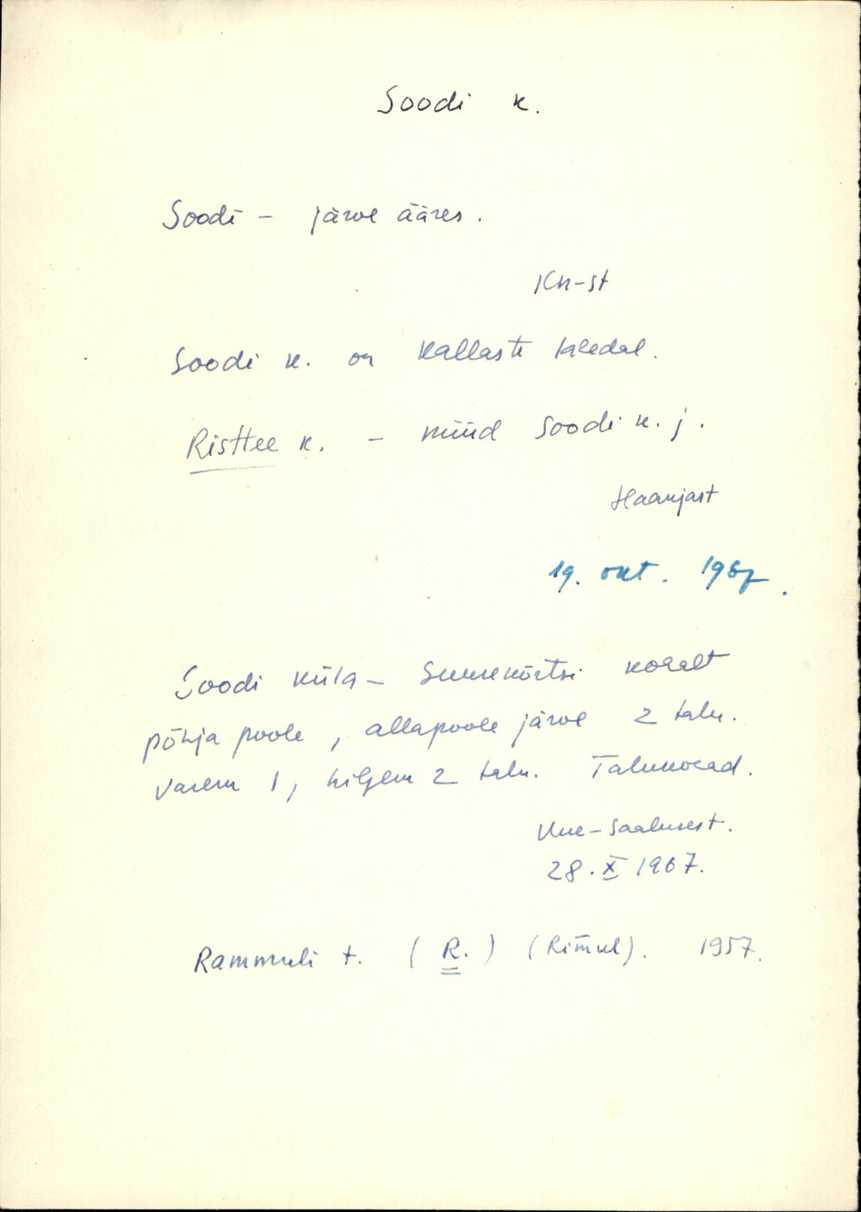 Soodi k.
Soodi – järve ääres.
Kn-st
Soodi k. on Kallaste
Risttee k. – nüüd Soodi k. j.
Haanjast
19. okt. 1967.
Soodi küla – Suurekõrtsi kohalt
põhja poole, allapoole järve 2 talu.
Varem 1, hiljem 2 talu. Talukohad.
Uue-Saalusest.
28. X 1967.
Rammuli t. (R.) 1957.